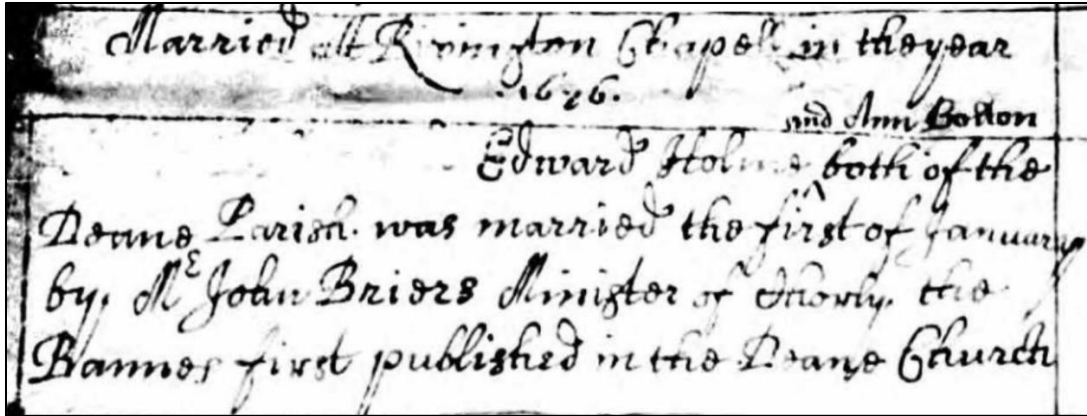 Married att Rivington Chapell in the year
1676.
and Ann Bolton
Edward Holme both of the
Deane Parish. was married the first of January
by. Mr John Briers Minister of Chorly. the
Bannes first published in the Deane Church